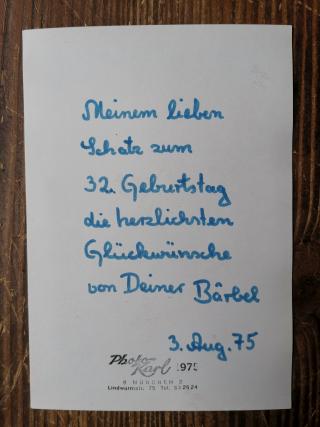 Meinem lieben
Schatz zum
32. Geburtstag
die herzlichsten
Glückwünsche
von Deiner Bärbel
3. Aug. 75
Photo Karl 1975
8 MÜNCHEN 2
Lindwurmstr. 75 Tel.